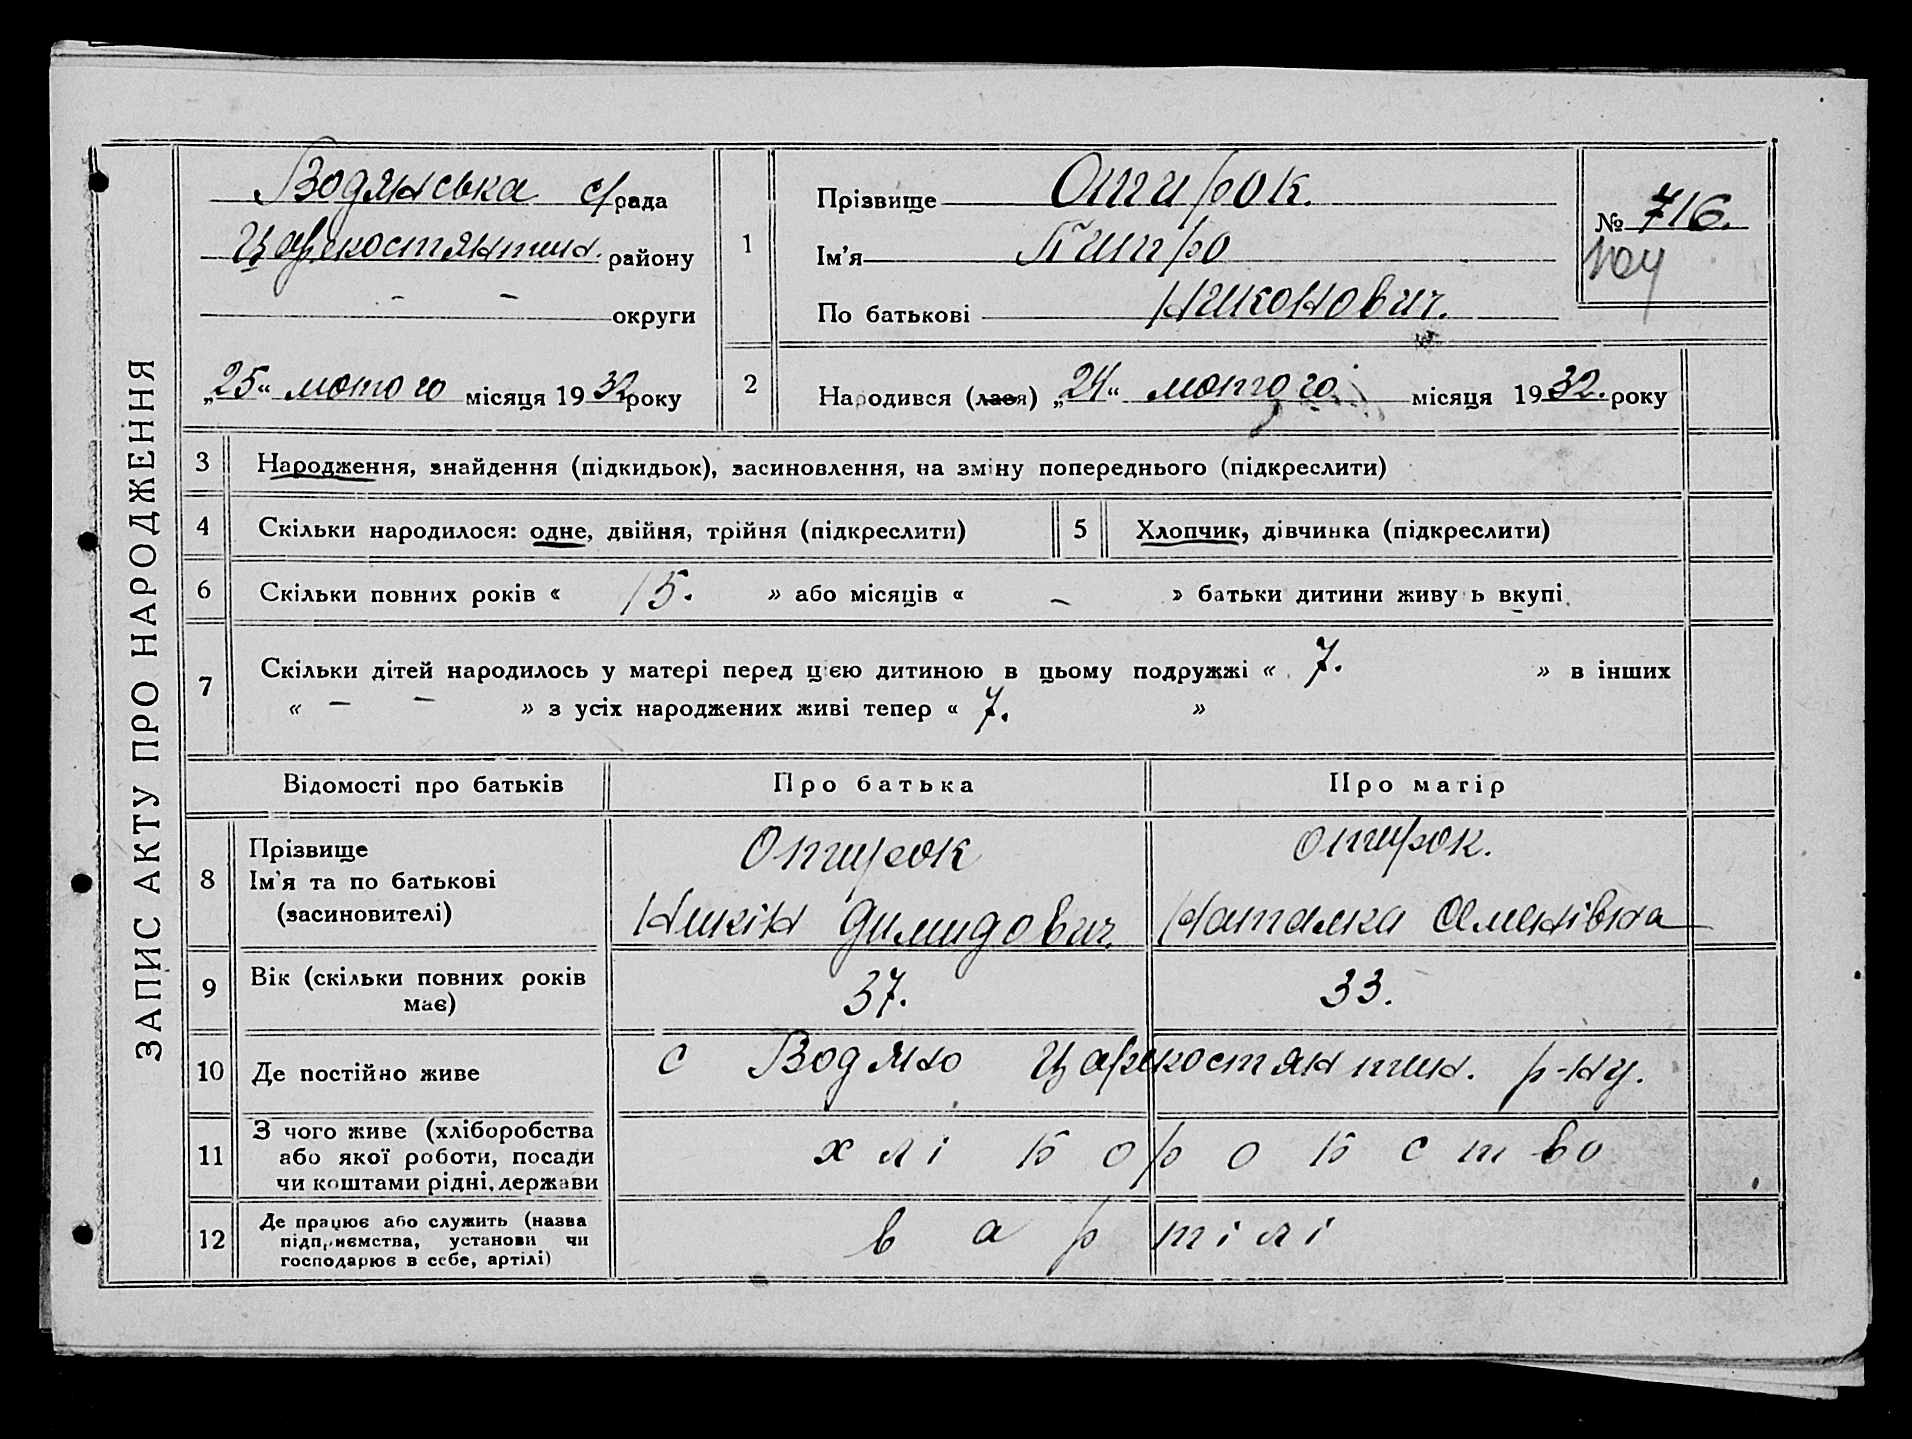 ЗАПИС АКТУ ПРО НАРОДЖЕННЯ
Водянська с/рада
Царекостянтин. району
– – округи
„25“ лютого місяця 1932 року
1
Прізвище Опирок.
Ім'я Питро
По батькові Никонович.
№ 716.
2
Народився (лася) „24“ лютого місяця 1932. року
3 Народження, знайдення (підкидьок), засиновлення, на зміну попереднього (підкреслити)
4 Скільки народилося: одне, двійня, трійня (підкреслити)
5 Хлопчик, дівчинка (підкреслити)
6 Скільки повних років « 15. » або місяців « – » батьки дитини живу ь вкупі
7 Скільки дітей народилось у матері перед цією дитиною в цьому подружжі « 7. » в інших
« – – » з усіх народжених живі тепер « 7. »
Відомості про батьків Про батька Про матір
8
Прізвище
Ім'я та по батькові
(засиновителі)
Опирок
Никін Димидович.
Опирок.
Наталка Оменівна
9 Вік (скільки повних років
має)
37. 33.
10 Де постійно живе с Водяно Царекостянтин. р-ну.
11 З чого живе (хліборобства
або якої роботи, посади
чи коштами рідні, держави
хліборобство
12 Де працює або служить (назва
підприємства, установи чи
господарює в себе, артілі)
в артілі